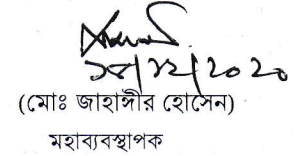 ২৮/১২/২০২০
(মোঃ জাহাঙ্গীর হোসেন)
মহাব্যবস্থাপক